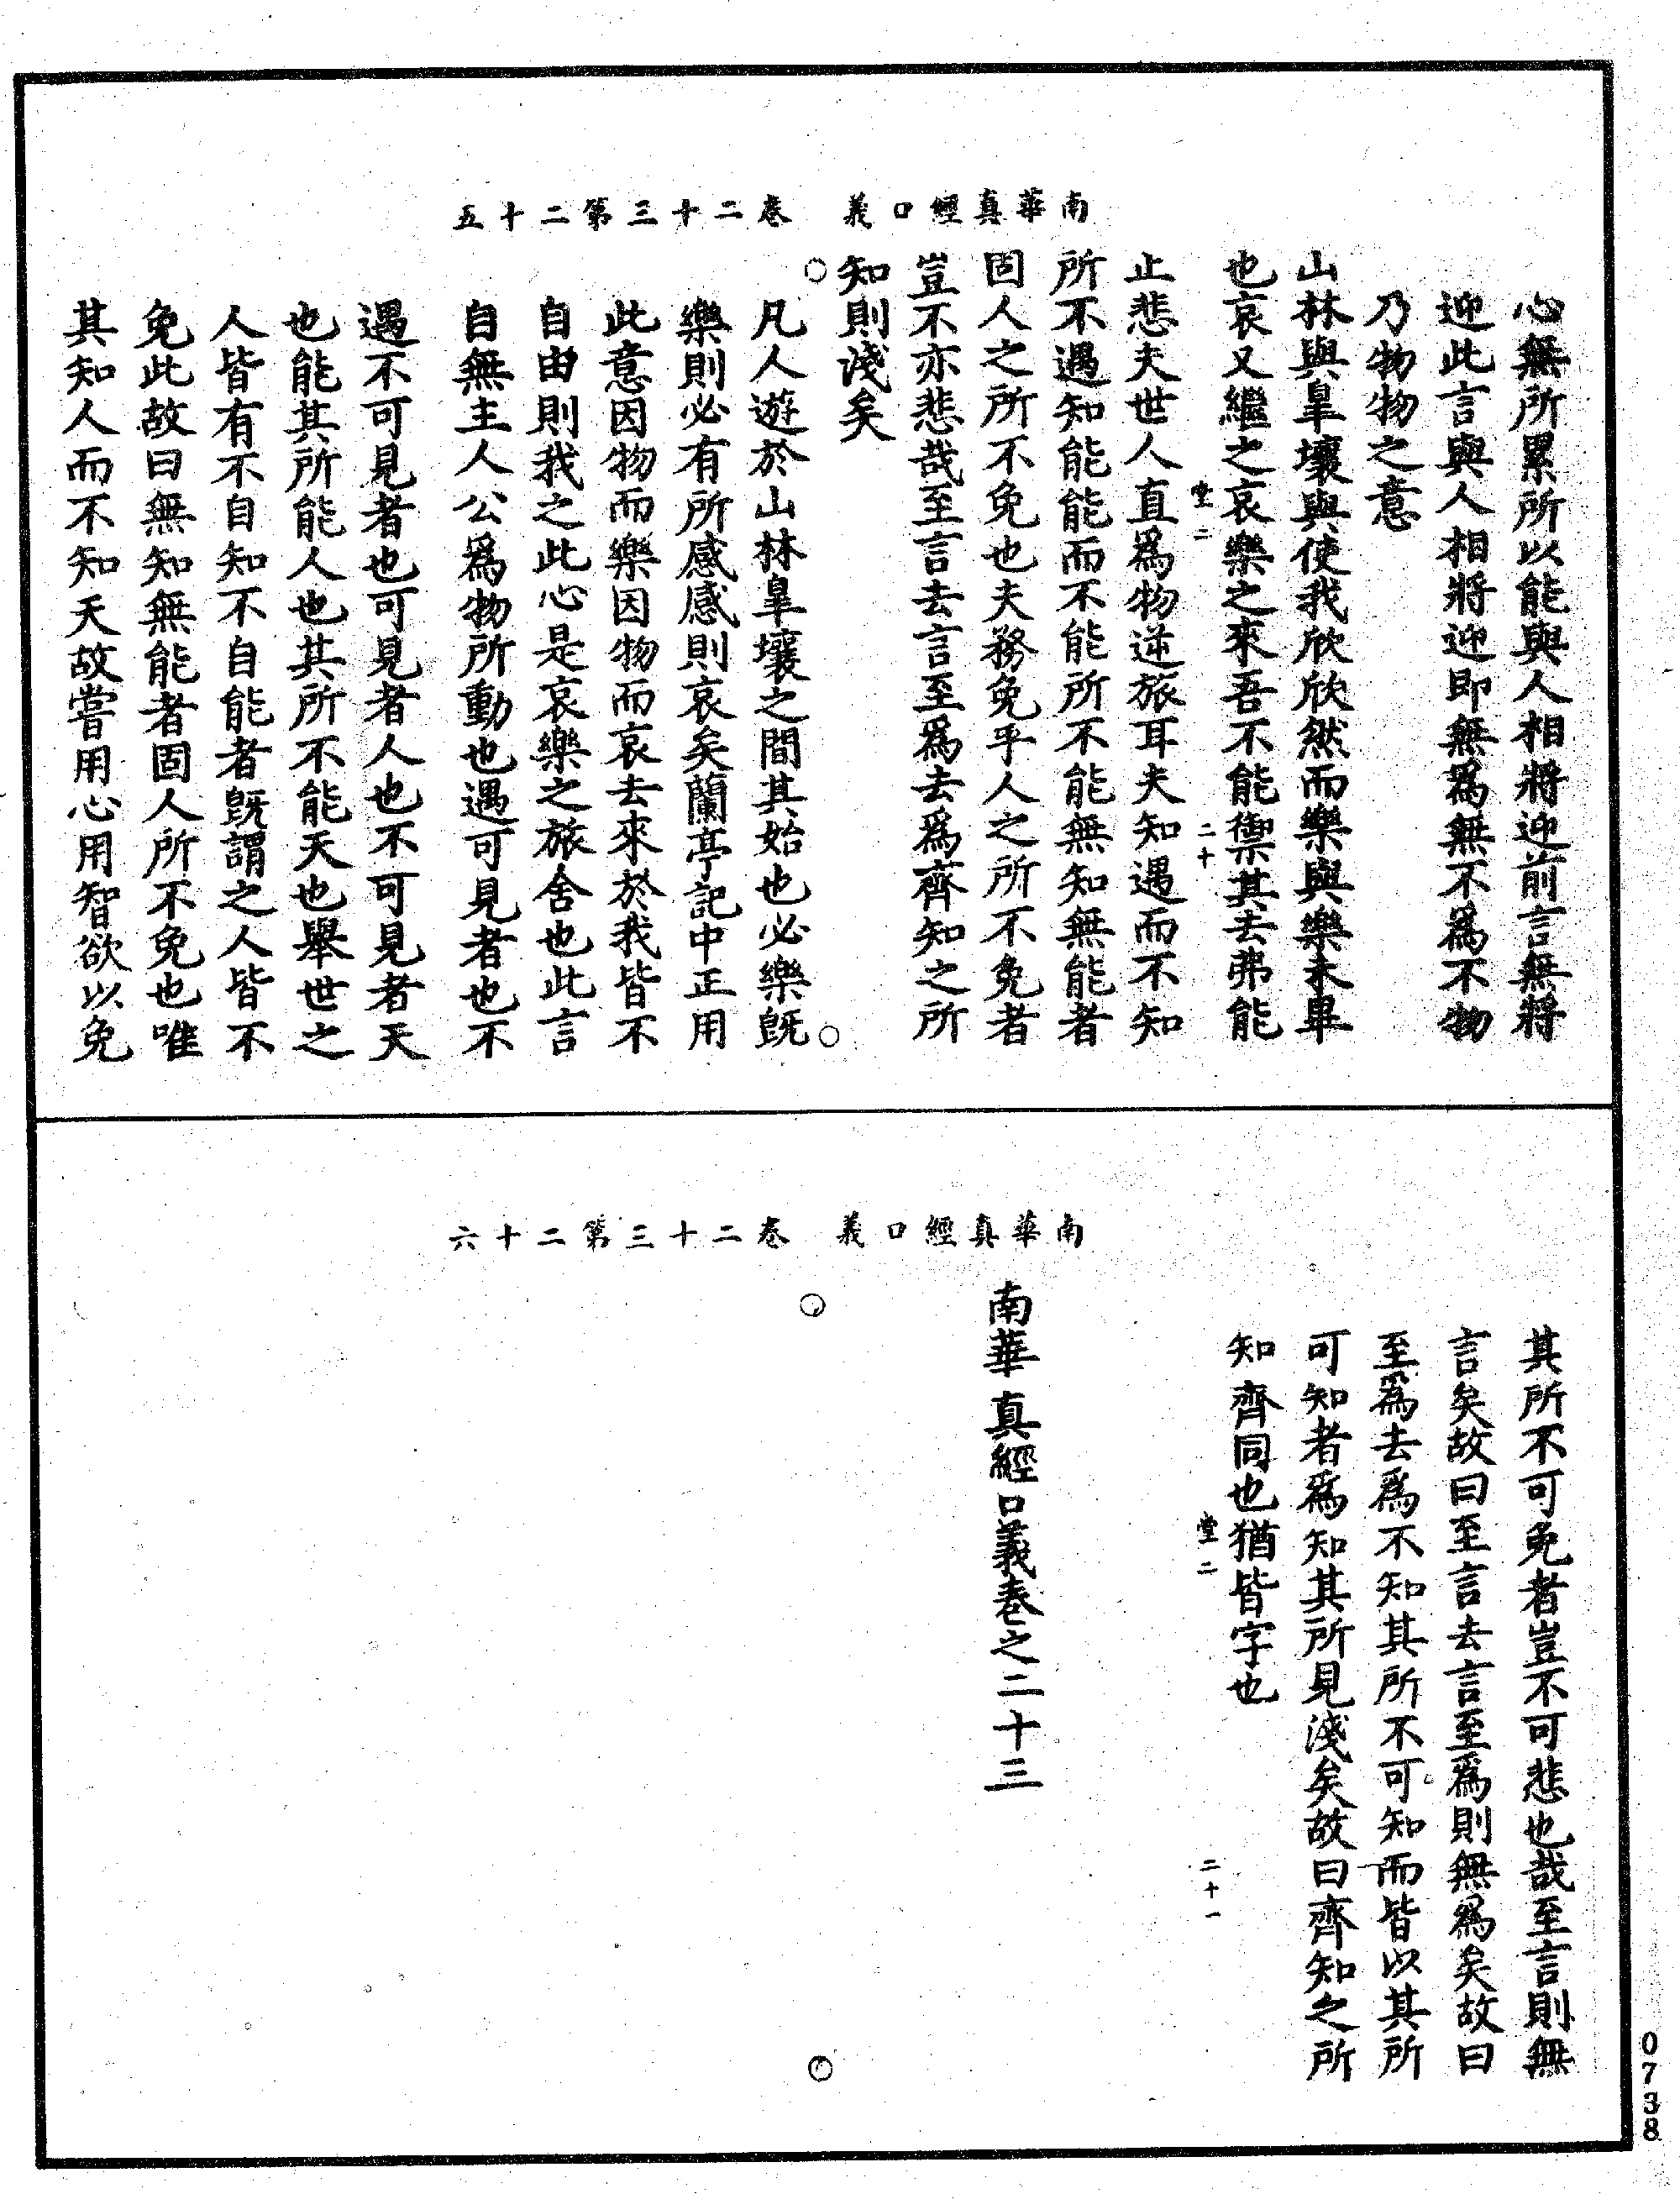 南華真經口義　卷二十三第二十五
心無所累所以能與人相將迎前言無將
迎此言與人相將迎即無為無不為不物
乃物物之意
山林與臯壤與使我欣欣然而樂與樂未畢
也哀又繼之哀樂之來吾不能禦其去弗能
堂二　二十
止悲夫世人直為物逆旅耳夫知遇而不知
所不遇知能能而不能所不能無知無能者
固人之所不免也夫務免乎人之所不免者
豈不亦悲哉至言去言至爲去爲齊知之所
知則淺矣
凡人遊於山林臯壤之間其始也必樂既
樂則必有所感感則哀矣蘭亭記中正用
此意因物而樂因物而哀去來於我皆不
自由則我之此心是哀樂之旅舍也此言
自無主人公爲物所動也遇可見者也不
遇不可見者也可見者人也不可見者天
也能其所能人也其所不能天也舉世之
人皆有不自知不自能者既謂之人皆不
免此故曰無知無能者固人所不免也唯
其知人而不知天故嘗用心用智欲以免
南華真經口義　卷二十三第二十六
其所不可免者豈不可悲也哉至言則無
言矣故曰至言去言至爲則無爲矣故曰
至爲去爲不知其所不可知而皆以其所
可知者爲知其所見淺矣故曰齊知之所
知齊同也猶皆字也
堂二　二十一
南華真經口義卷之二十三
0738